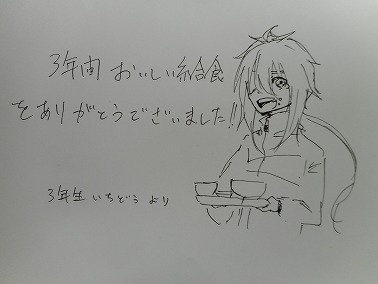 3年間 おいしい給食
をありがとうございました!!
3年生 いちどう より